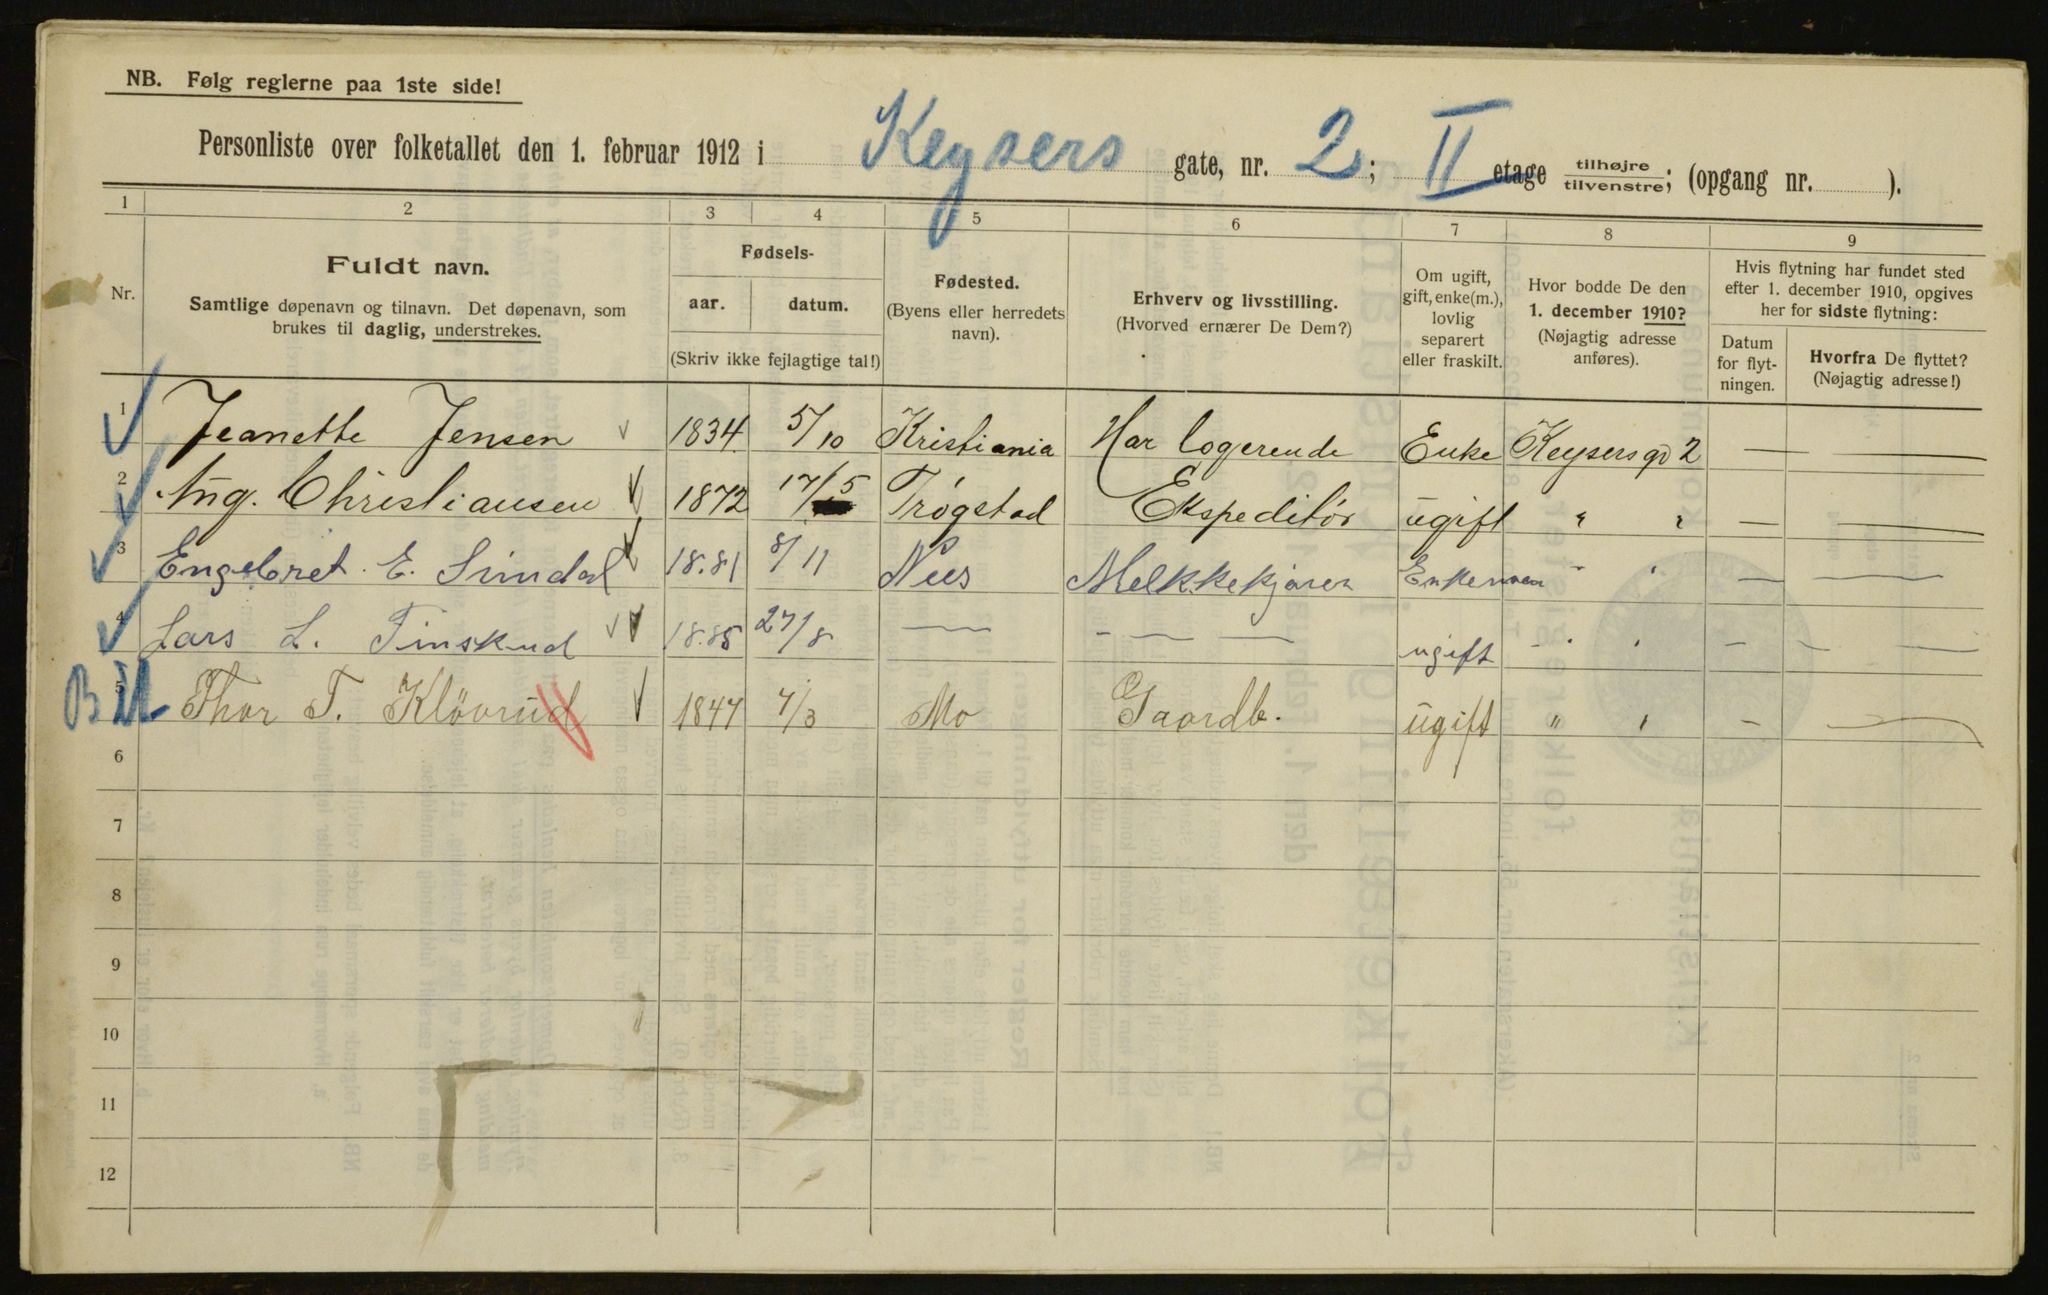 NB. Følg reglerne paa 1ste side!
Personliste over folketallet den 1. februar 1912 i Keysers gate, nr. 2; II etage tilhøjre tilvenstre; (opgang nr. ).
1 2 3 4 5 6 7 8 9
Nr.
Fuldt navn.
Samtlige døpenavn og tilnavn. Det døpenavn, som
brukes til daglig, understrekes.
Fødsels-
aar. datum.
(Skriv ikke fejlagtige tal!)
Fødested.
(Byens eller herredets
navn).
Erhverv og livsstilling.
(Hvorved ernærer De Dem?)
Om ugift,
gift, enke(m.),
lovlig
separert
eller fraskilt.
Hvor bodde De den
1. december 1910?
(Nøjagtig adresse
anføres).
Hvis flytning har fundet sted
efter 1. december 1910, opgives
her for sidste flytning:
Datum
for flyt-
ningen.
Hvorfra De flyttet?
(Nøjagtig adresse!)
1 Jeanette Jensen 1834 5/10 Kristiania Har logerende Enke Keysersgd 2 — —
2 Aug. Christiansen 1872 17/5 Trøgstad Ekspeditør ugift " " — —
3 Engebret E. 18.81 8/11 Nees Melkkekjører Enkeman " " — —
4 Lars L. 18.85 27/8 — - — — ugift " " - - —
5 Thor T. Kløvrud 1847 7/3 Mo Gaardb. ugift " " - —
6
7
8
9
10
11
12